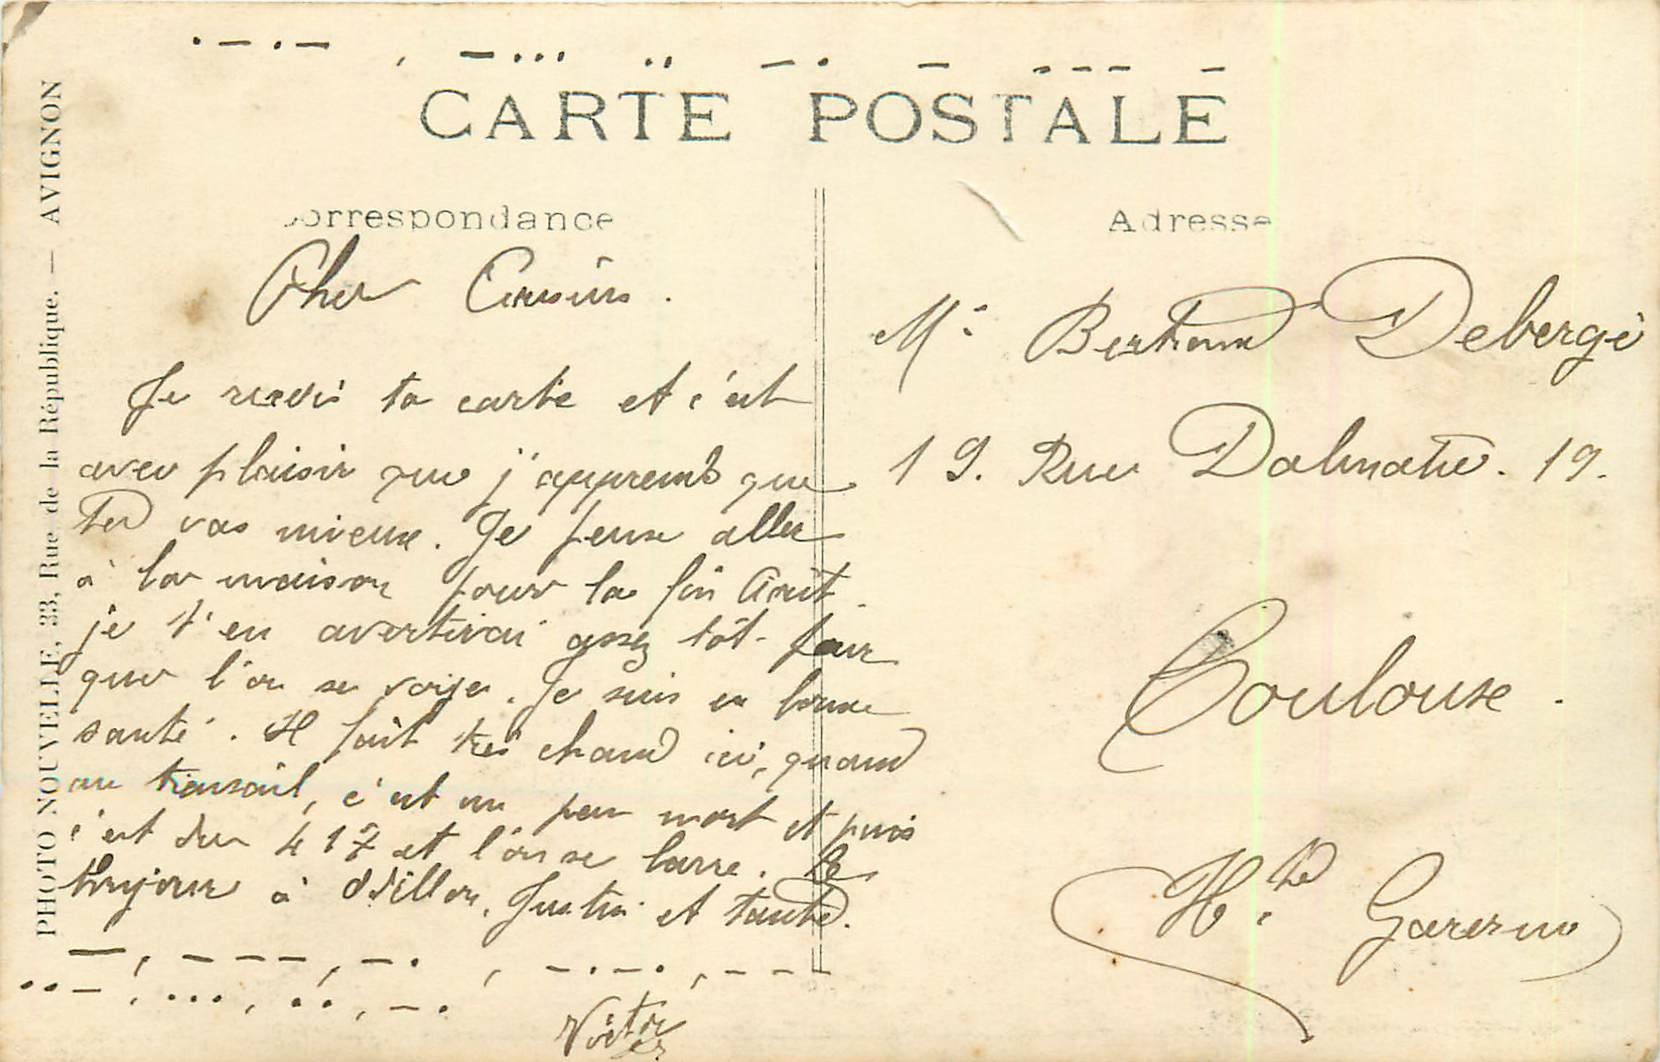 ·—·— , —··· ·· —· — ·——— —
CARTE POSTALE
PHOTO NOUVELLE, 33, Rue de la République. — AVIGNON
Correspondance
Adresse
Cher Cousin.
Je reçois ta carte et c'est
avec plaisir que j'apprend que
vas mieux. Je peux aller
à la maison pour la fin Août.
je t'en avertirai assez tôt pour
que l'on se voye. Je suis en bonne
santé. Il fait très chaud ici, quand
au travail, c'est un peu mort et puis
c'est du 417 et l'on se barre. Le
toujours à Justin et tante.
— , — — — , — · , — · — · , — — —
· · — , · · · , · · , — · ,
Mr Bertrand Debergé
19. Rue Dalmatie. 19.
Toulouse.
Hte Garonne